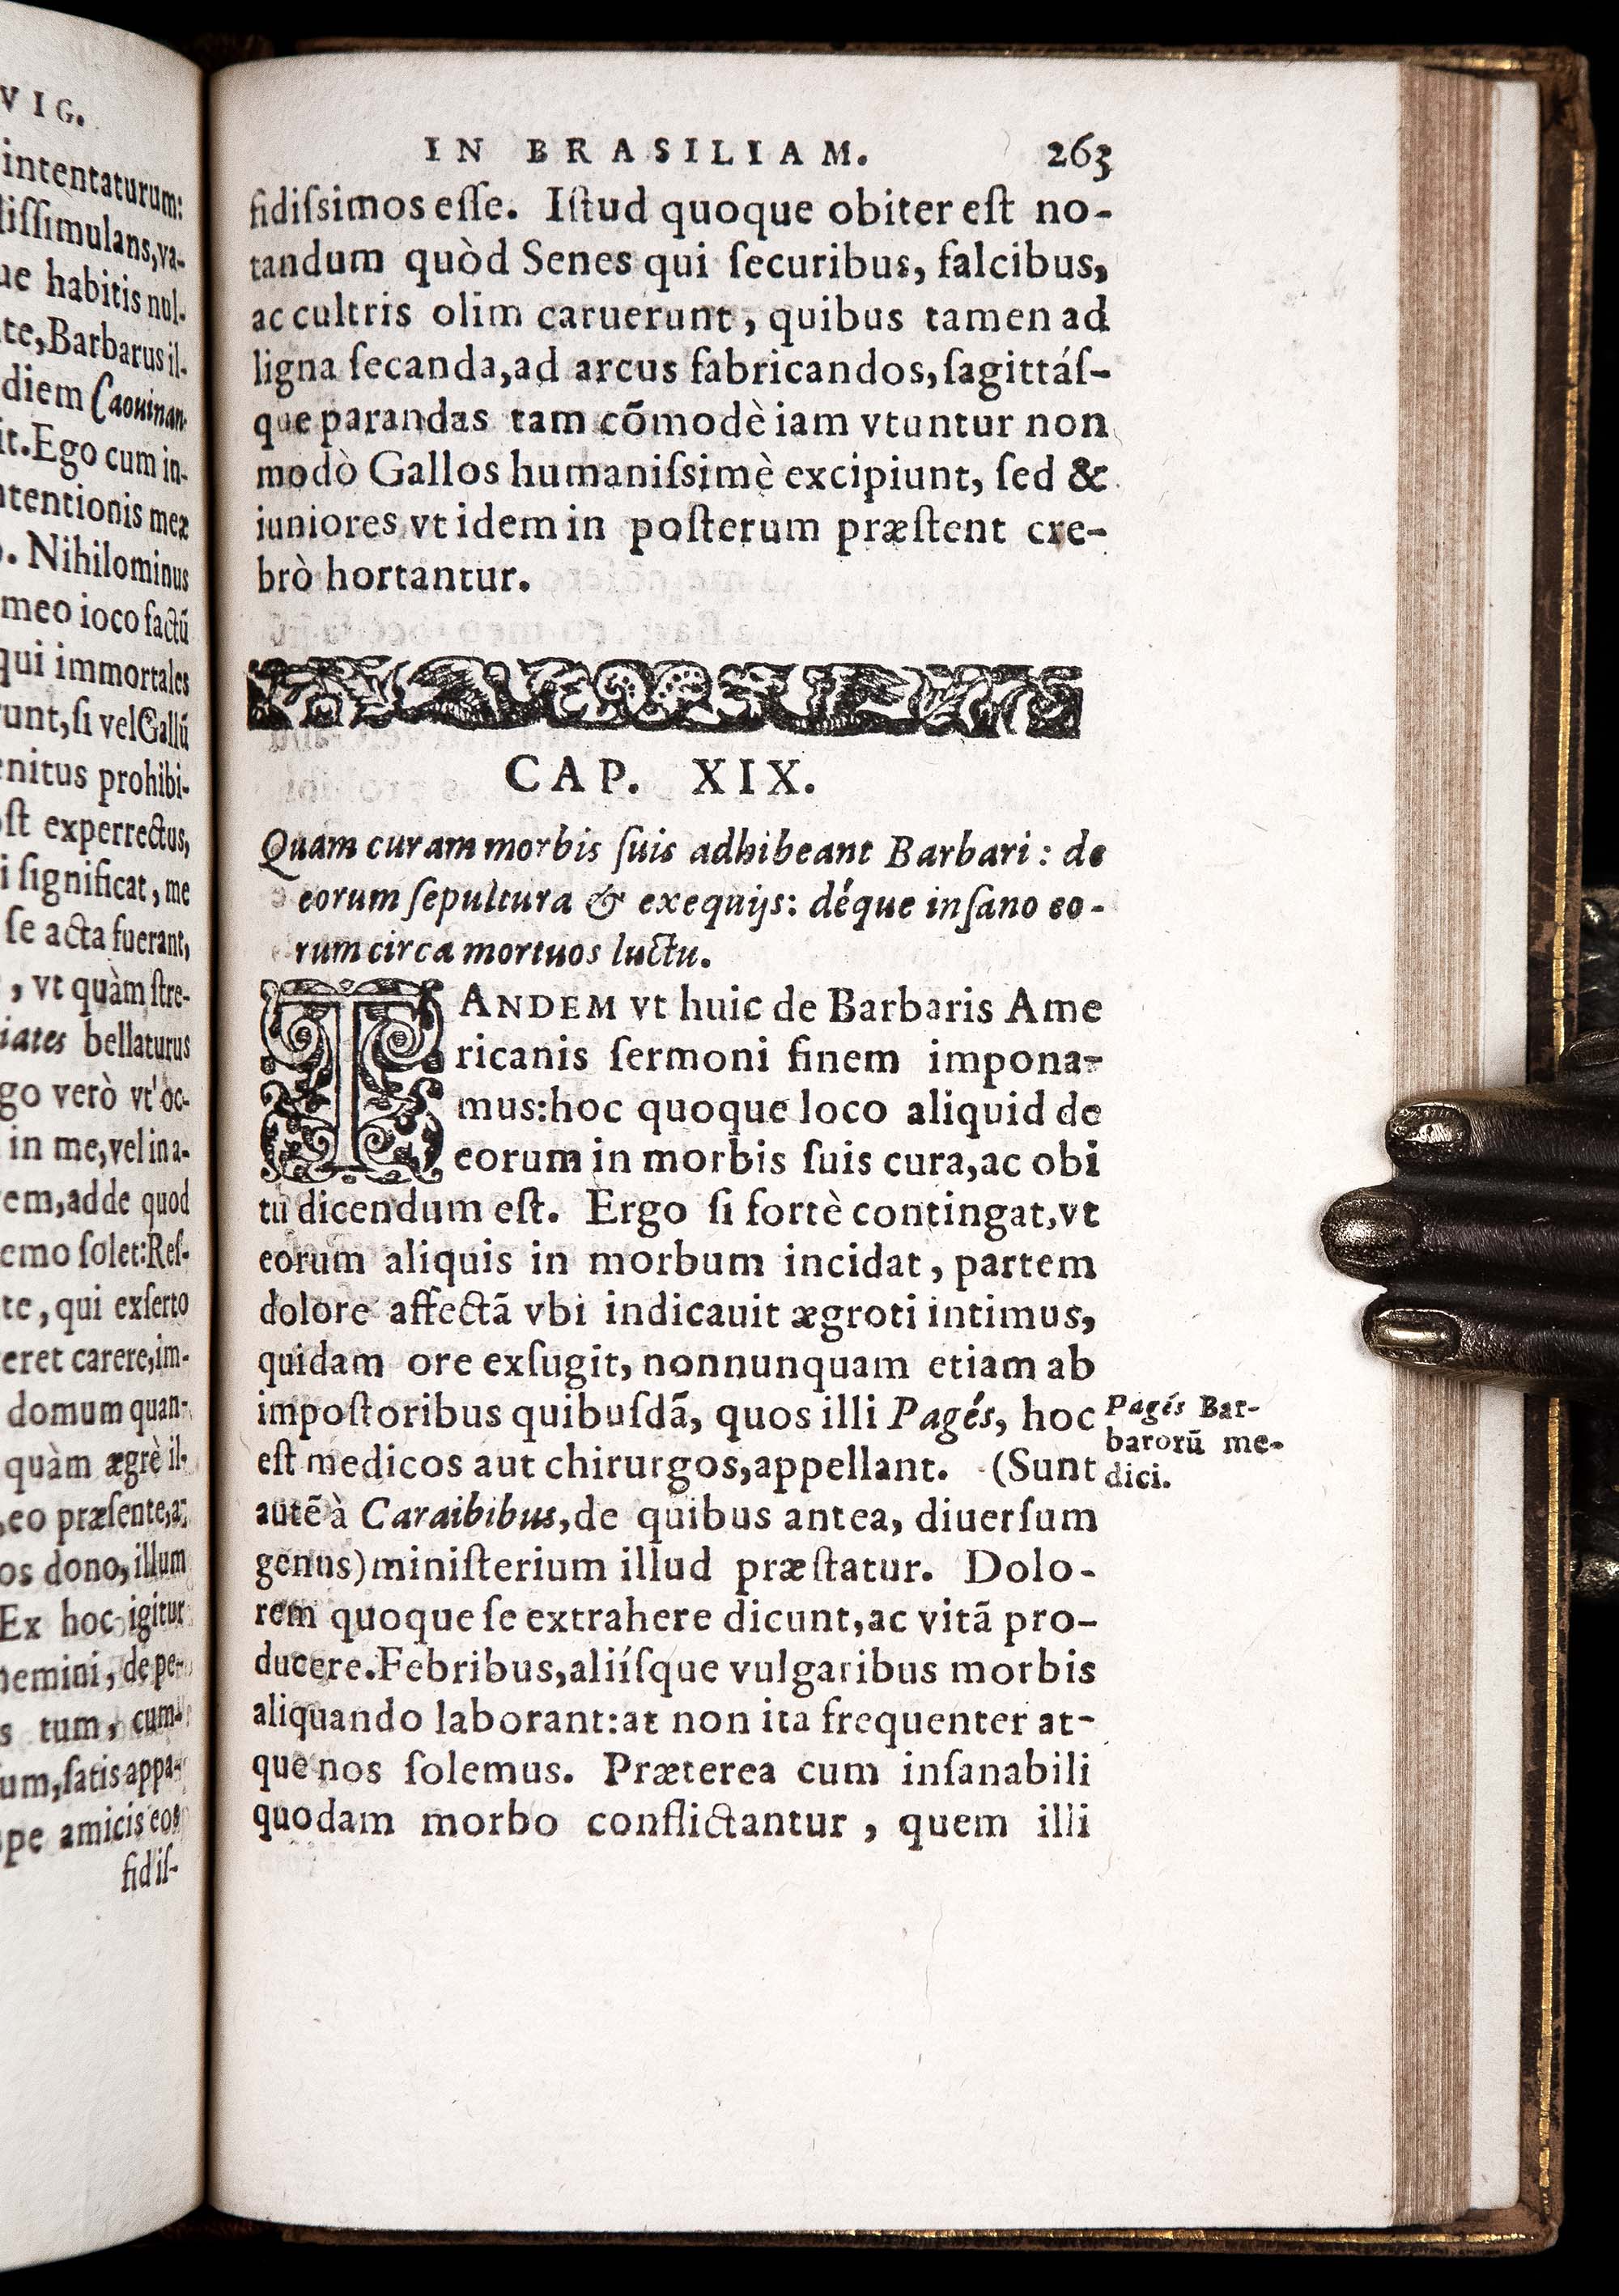 VIG.
intentaturum:
dissimulans, va-
habitis nul-
te, Barbarus il-
diem Caouinan-
it. Ego cum in-
tentionis meæ
Nihilominus
meo ioco factū
qui immortales
runt, si vel Gallū
enitus prohibi-
ost experrectus,
significat, me
se acta fuerant,
, vt quàm stre-
iates bellaturus
go verò vt oc-
in me, vel in a-
em, adde quod
emo solet: Res-
te, qui exserto
eret carere, im-
domum quan-
quàm ægrè il-
eo præsente, a;
os dono, illum
Ex hoc igitur
nemini, de pe-
s tum, cum
um, satis appa-
pe amicis eos
fidis-
IN BRASILIAM. 263
fidiſsimos eſſe. Iſtud quoque obiter eſt no-
tandum quòd Senes qui ſecuribus, falcibus,
ac cultris olim caruerunt, quibus tamen ad
ligna ſecanda, ad arcus fabricandos, ſagittáſ-
que parandas tam cōmodè iam vtuntur non
modò Gallos humaniſsimè excipiunt, ſed &
iuniores vt idem in poſterum præſtent cre-
brò hortantur.
CAP. XIX.
Quam curam morbis ſuis adhibeant Barbari: de
eorum ſepultura & exequijs: déque inſano eo-
rum circa mortuos luctu.
TANDEM vt huic de Barbaris Ame
ricanis ſermoni finem impona-
mus: hoc quoque loco aliquid de
eorum in morbis ſuis cura, ac obi
tu dicendum eſt. Ergo ſi fortè contingat, vt
eorum aliquis in morbum incidat, partem
dolore affectā vbi indicauit ægroti intimus,
quidam ore exſugit, nonnunquam etiam ab
impoſtoribus quibuſdā, quos illi Pagés, hoc
eſt medicos aut chirurgos, appellant. (Sunt
autē à Caraibibus, de quibus antea, diuerſum
genus) miniſterium illud præſtatur. Dolo-
rem quoque ſe extrahere dicunt, ac vitā pro-
ducere. Febribus, aliíſque vulgaribus morbis
aliquando laborant: at non ita frequenter at-
que nos ſolemus. Præterea cum inſanabili
quodam morbo conflictantur, quem illi
Pagés Bar-
barorū me-
dici.